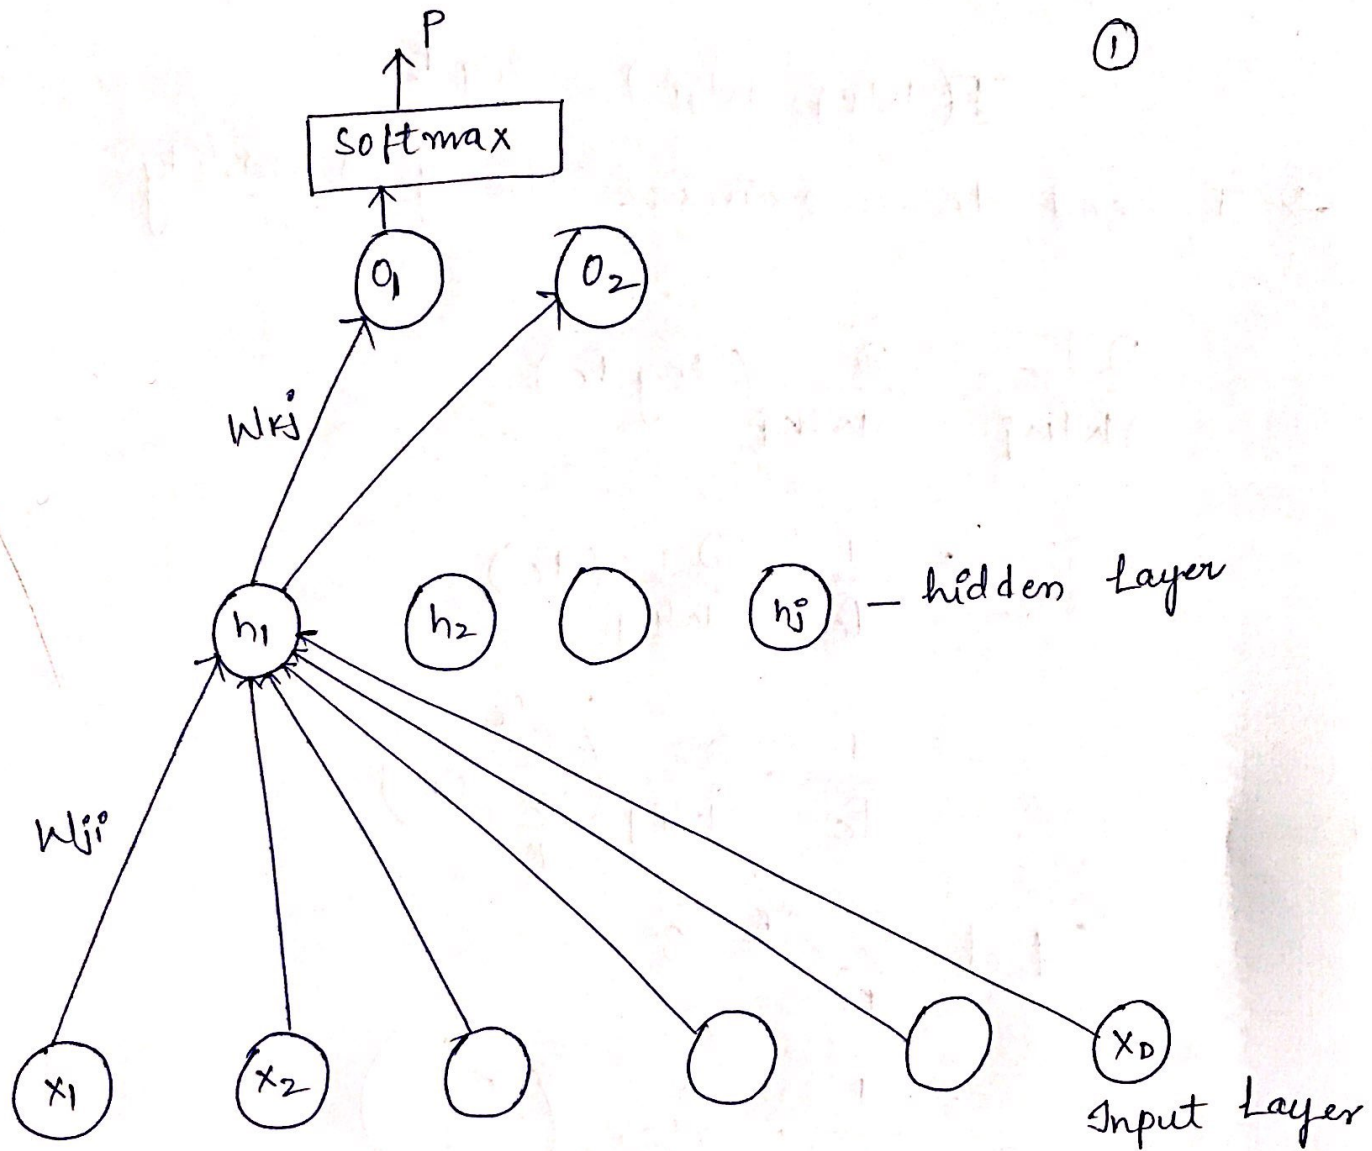 P
①
Softmax
O1
O2
Wkj
h1
h2
hj
— hidden Layer
Wji
x1
x2
xD
Input Layer